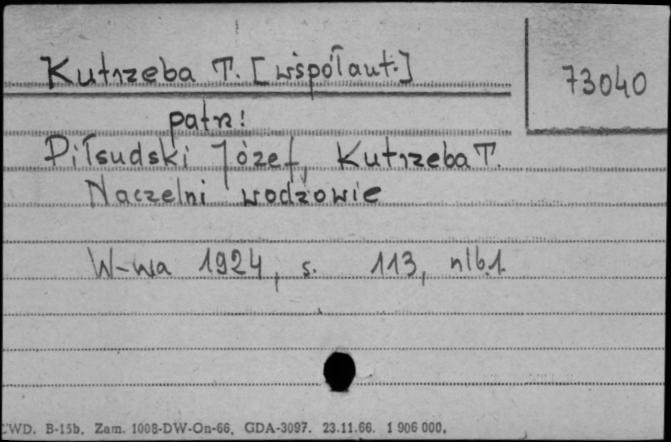 Kutrzeba T. [współaut.]
73040
patrz!
Piłsudski Józef, Kutrzeba T.
Naczelni wodzowie
W-wa 1924, s. 113, nlb.1.
CWD. B-15b. Zam. 1008-DW-On-66. GDA-3097. 23.11.66. 1 906 000.